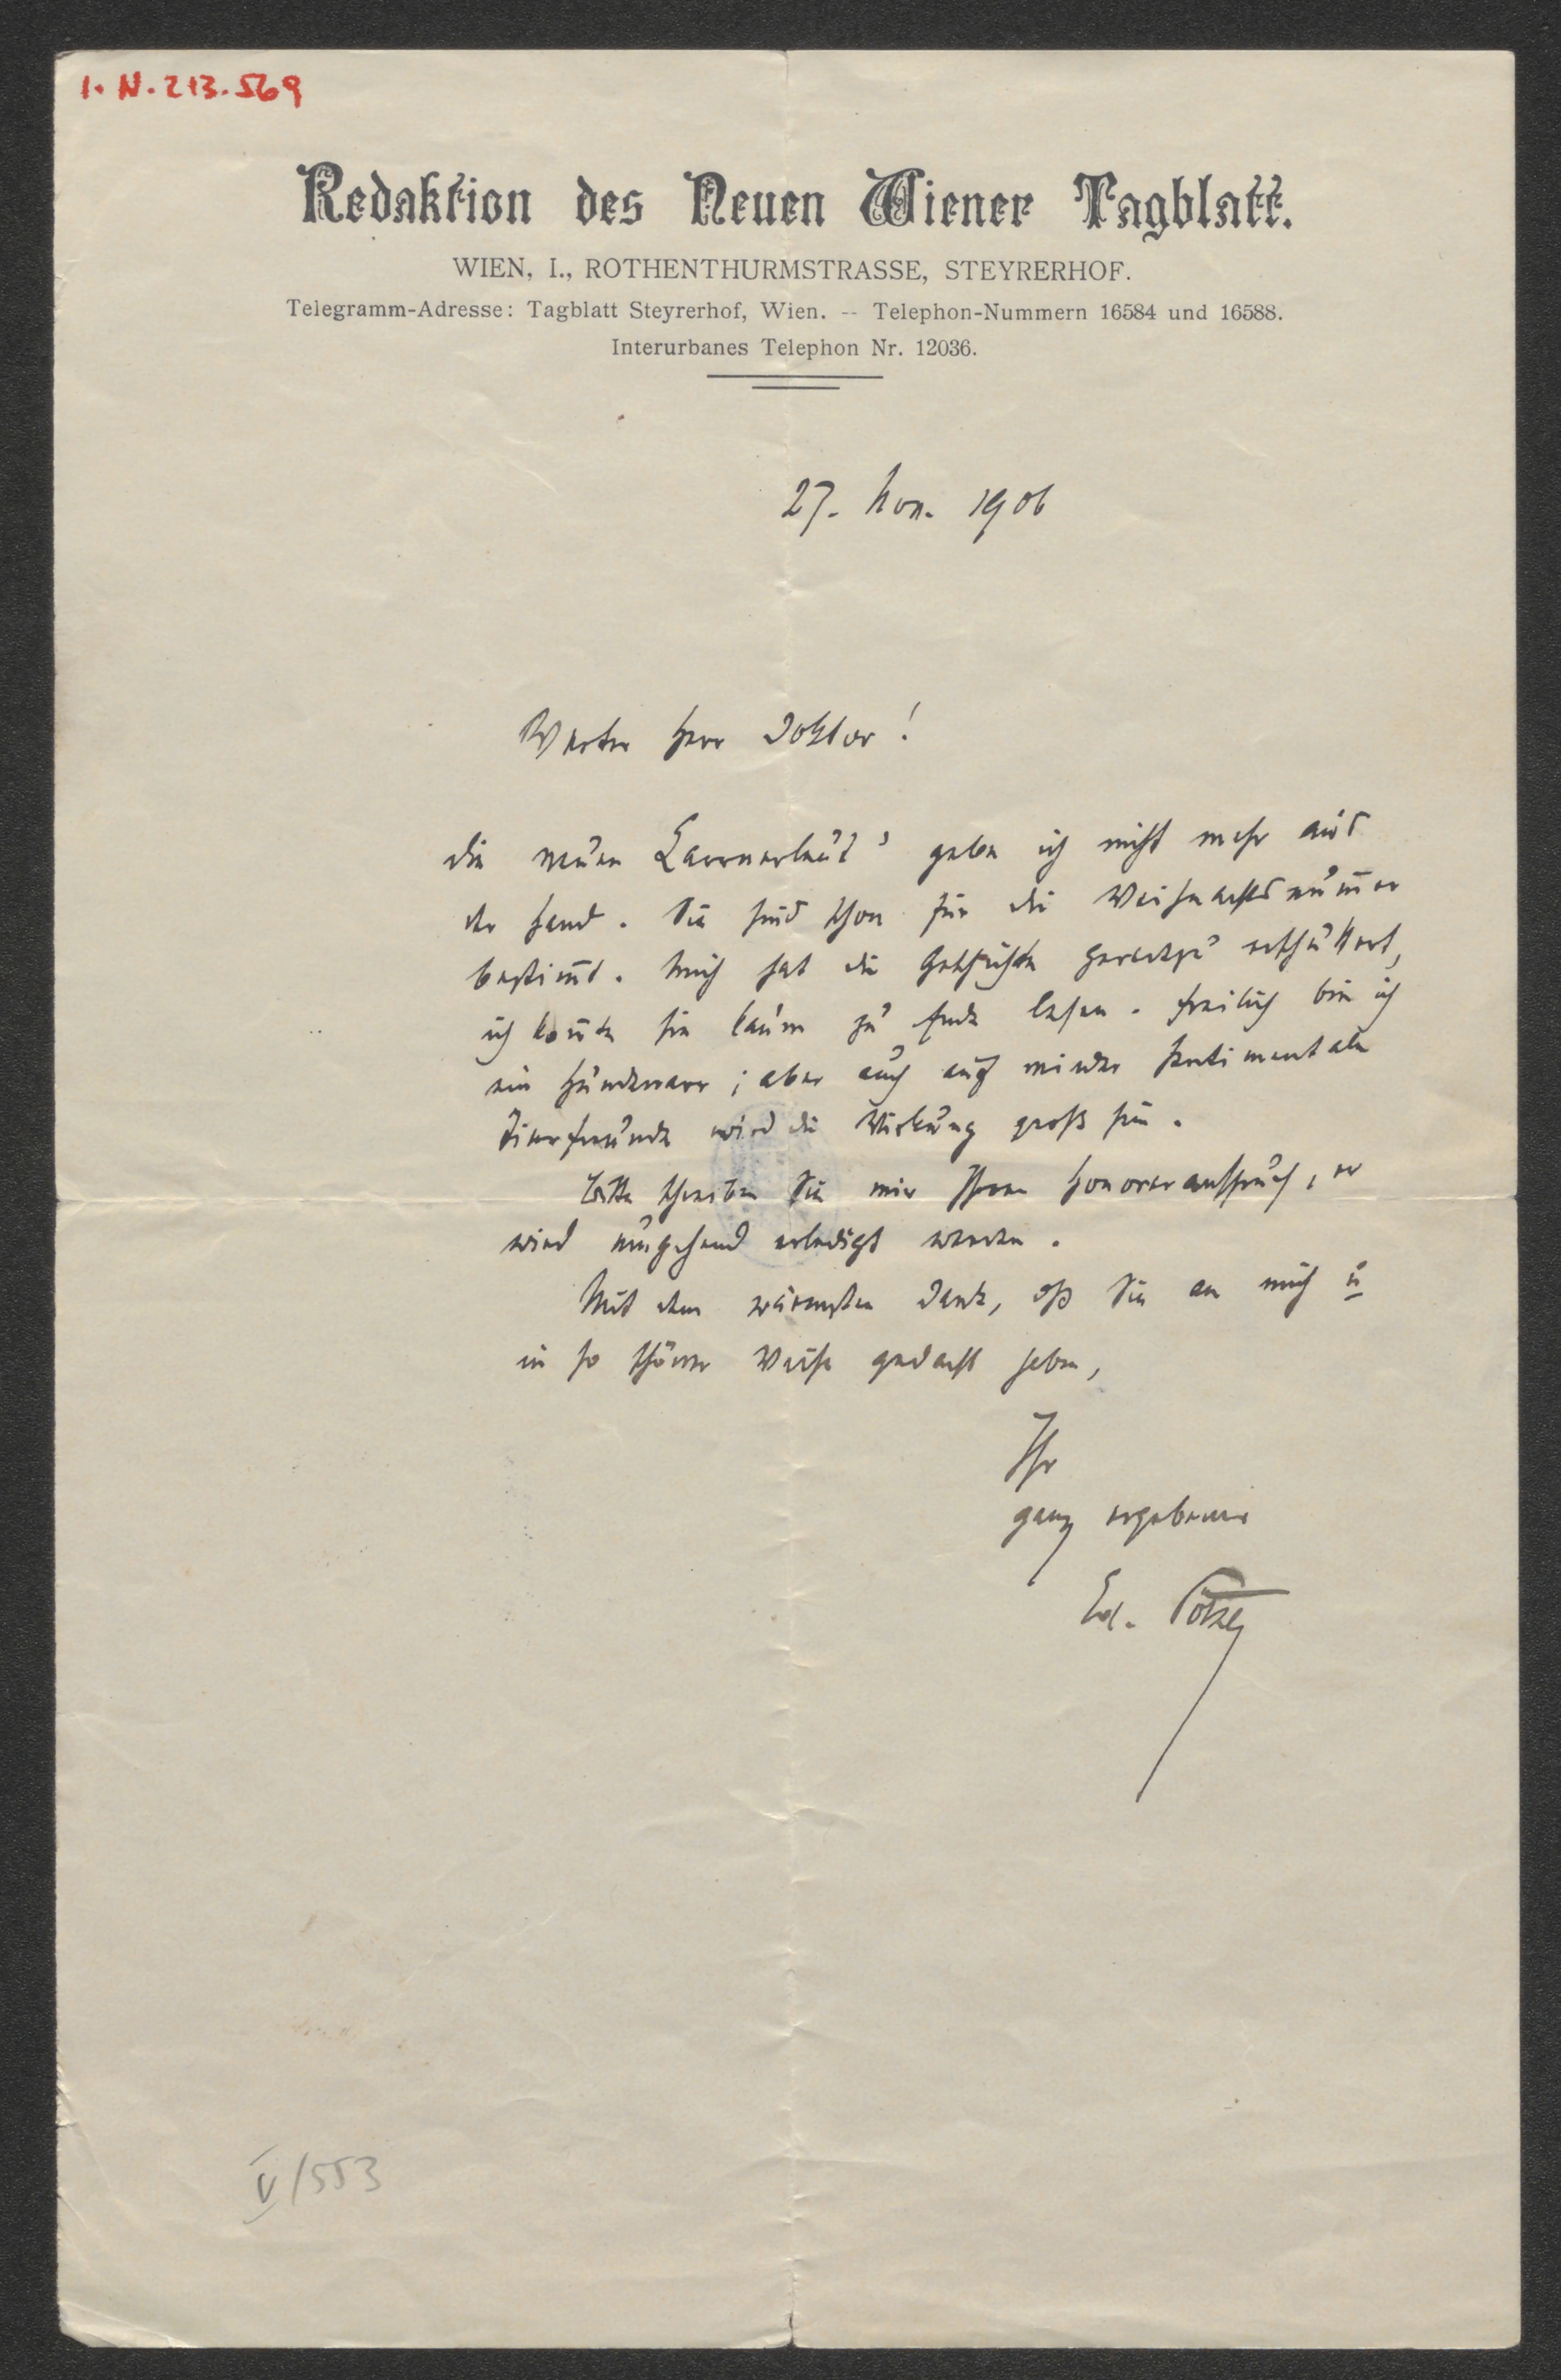 I. N. 213.569
Redaktion des Neuen Wiener Tagblatt.
WIEN, I., ROTHENTHURMSTRASSE, STEYRERHOF.
Telegramm-Adresse: Tagblatt Steyrerhof, Wien. -- Telephon-Nummern 16584 und 16588.
Interurbanes Telephon Nr. 12036.
27. Nov. 1906
Werter Herr Doktor!
die neuen gebe ich nicht mehr aus
der Hand. Sie sind schon für die Weihnachtsnum̅er
bestim̅t. Mich hat die Geschichte geradezu erschüttert,
ich kon̅te sie kaum zu Ende lesen. Freilich bin ich
ein Hundenarr; aber auch auf minder sentimentale
Tierfreunde wird die Wirkung groß sein.
Bitte schreiben Sie mir Ihren Honoraranspruch, er
wird umgehend erledigt werden.
Mit dem wärmsten Dank, dß Sie an mich u
in so schöner Weise gedacht haben,
Ihr
ganz ergebener
Ed. Pötzl
V/553